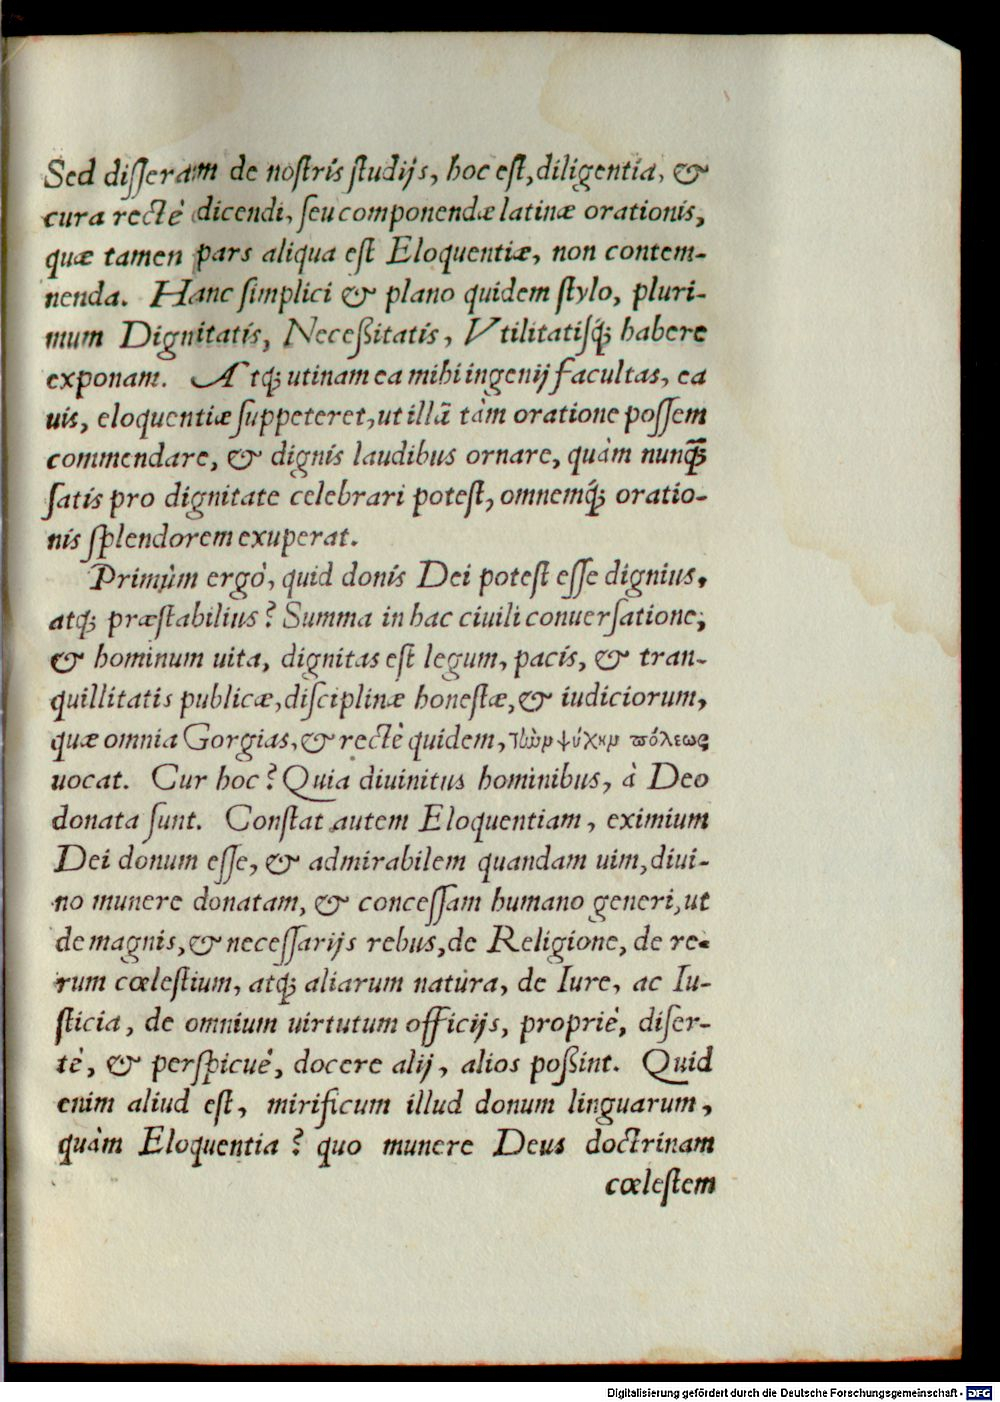 Sed disseram de nostris studijs, hoc est, diligentia, &
cura rectè dicendi, seu componendæ latinæ orationis,
quæ tamen pars aliqua est Eloquentiæ, non contem-
nenda. Hanc simplici & plano quidem stylo, pluri-
mum Dignitatis, Neceßitatis, Vtilitatisq́; habere
exponam. Atq; utinam ea mihi ingenij facultas, ea
uis, eloquentiæ suppeteret, ut illã tàm oratione possem
commendare, & dignis laudibus ornare, quàm nunq̃;
satis pro dignitate celebrari potest, omnemq́; oratio-
nis splendorem exuperat.
Primùm ergò, quid donis Dei potest esse dignius,
atq; præstabilius? Summa in hac ciuili conuersatione,
& hominum uita, dignitas est legum, pacis, & tran-
quillitatis publicæ, disciplinæ honestæ, & iudiciorum,
quæ omnia Gorgias, & rectè quidem, ψύχην πόλεως
uocat. Cur hoc? Quia diuinitus hominibus, à Deo
donata sunt. Constat autem Eloquentiam, eximium
Dei donum esse, & admirabilem quandam uim, diui-
no munere donatam, & concessam humano generi, ut
de magnis, & necessarijs rebus, de Religione, de re-
rum cœlestium, atq; aliarum natura, de Iure, ac Iu-
sticia, de omnium uirtutum officijs, propriè, diser-
tè, & perspicuè, docere alij, alios poßint. Quid
enim aliud est, mirificum illud donum linguarum,
quàm Eloquentia? quo munere Deus doctrinam
cœlestem
Digitalisierung gefördert durch die Deutsche Forschungsgemeinschaft - DFG